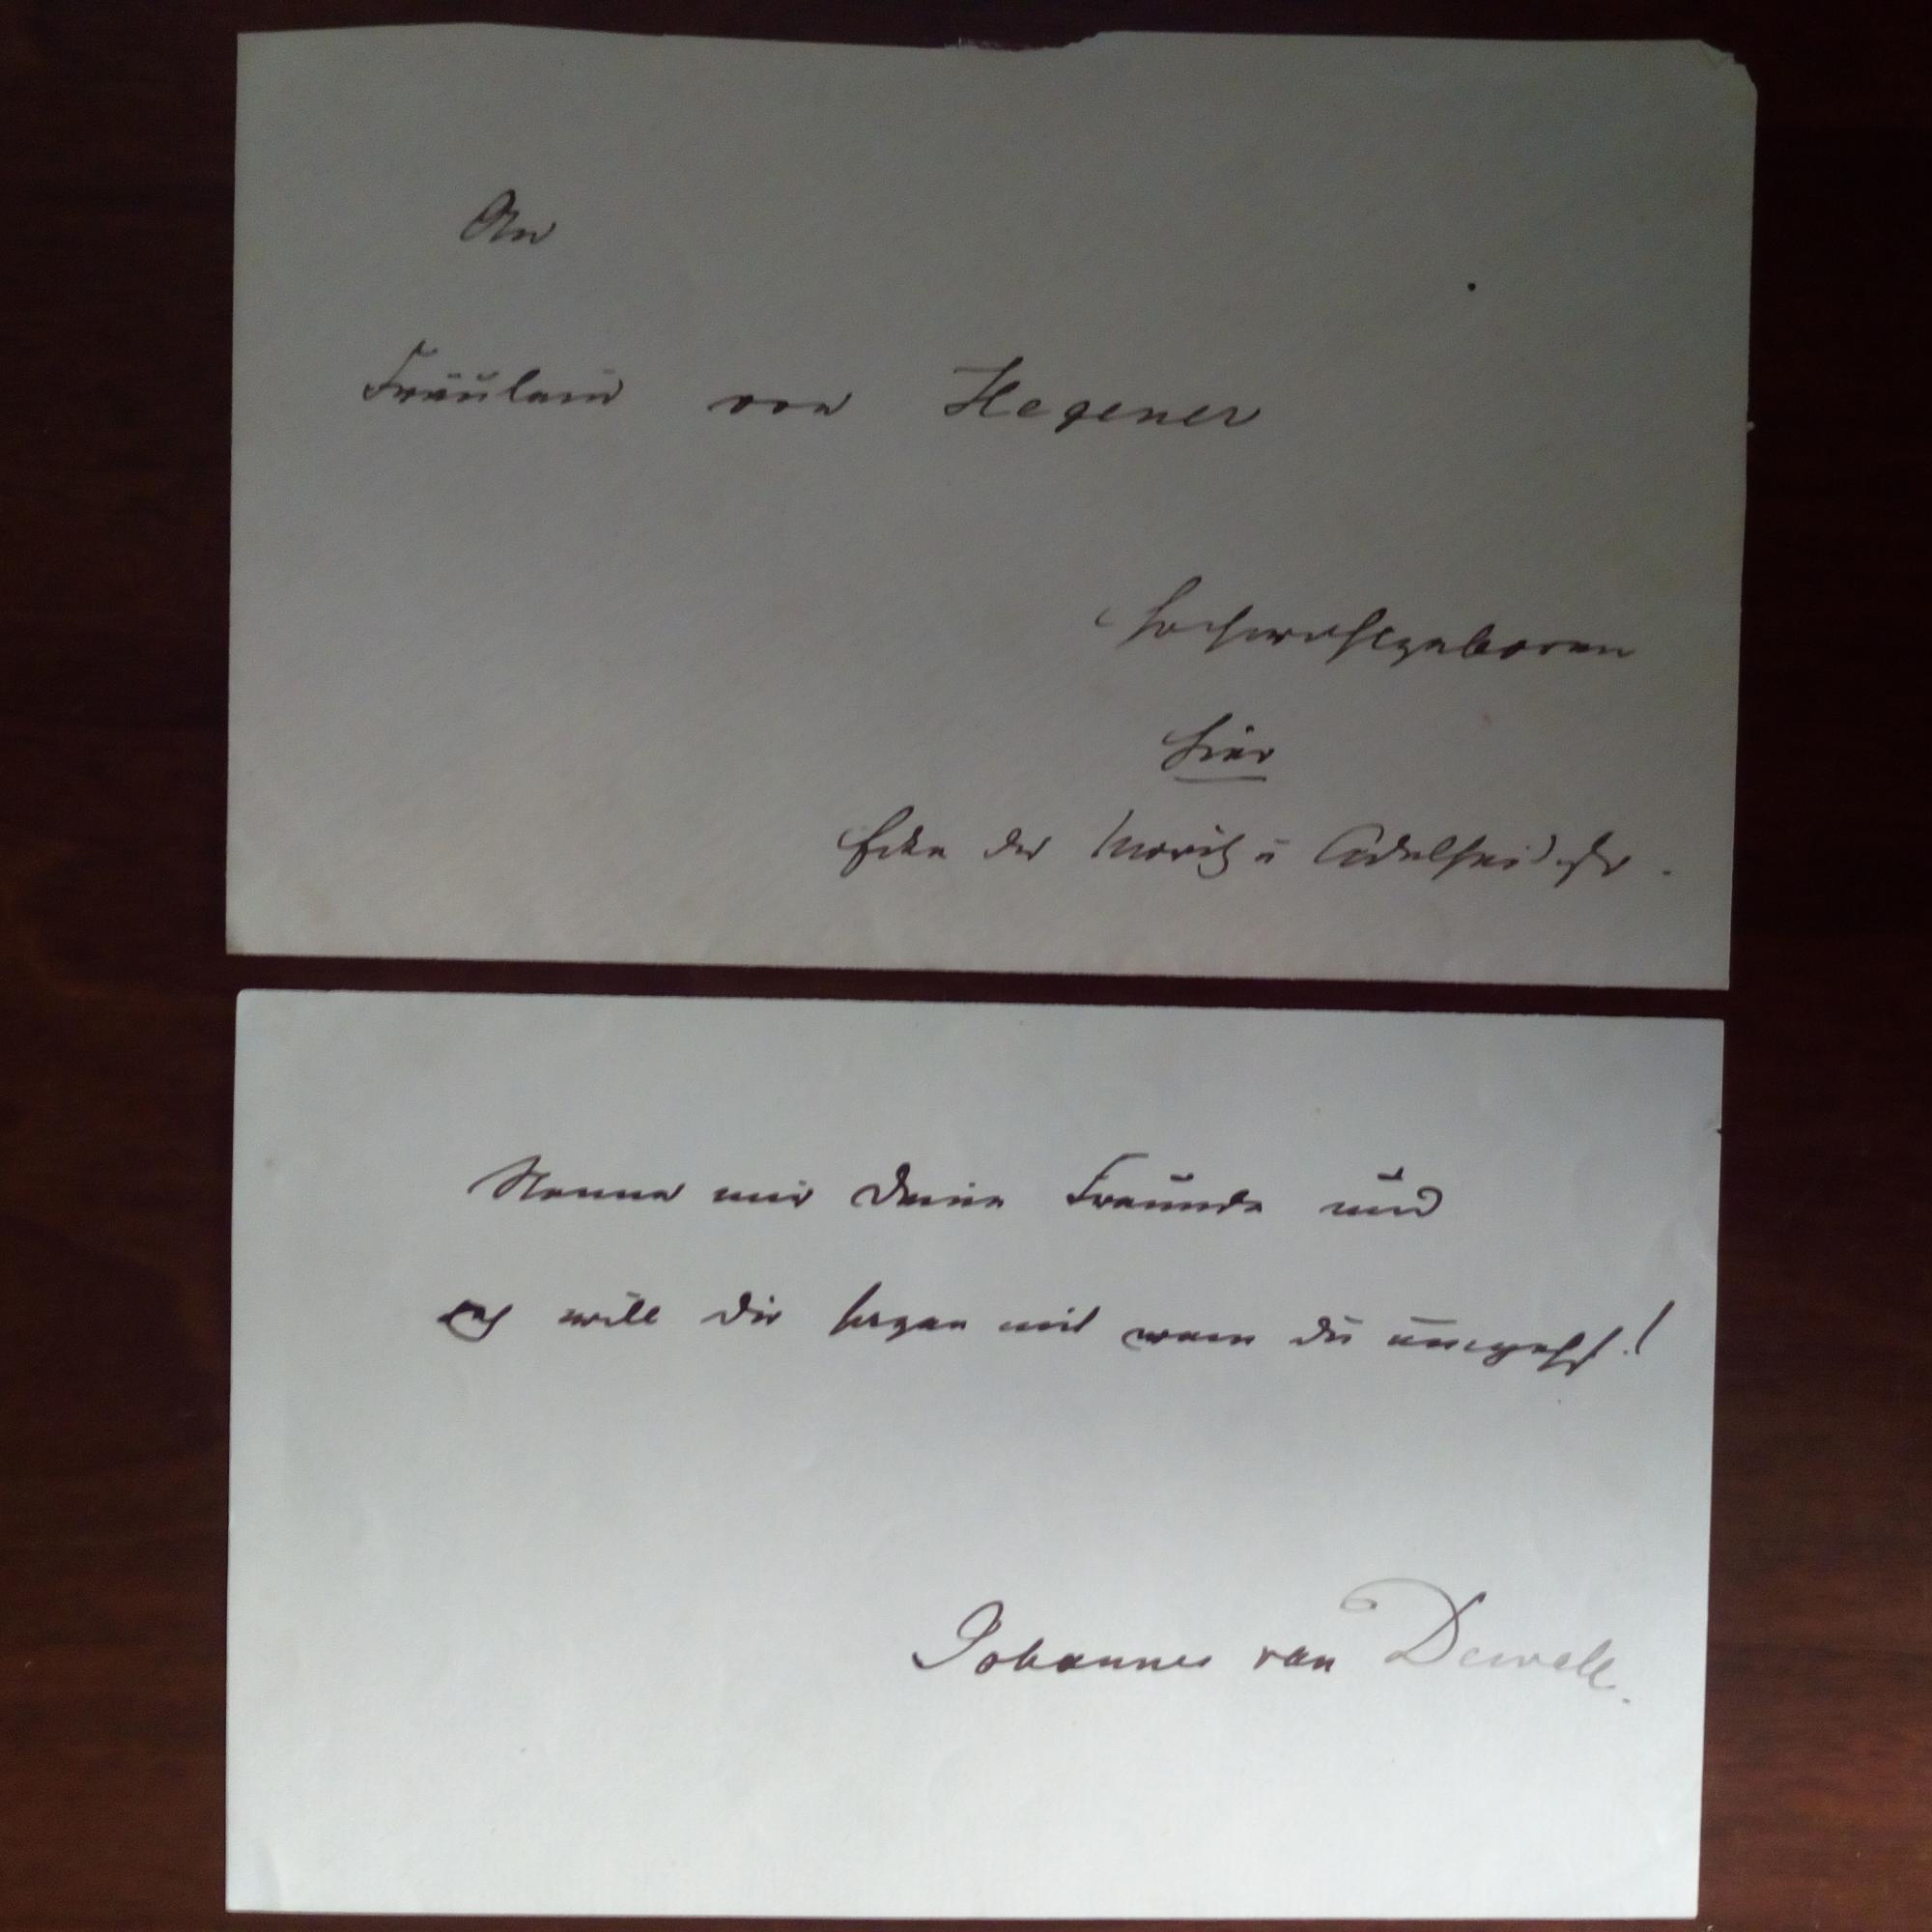 An
Fräulein von Hegener
Hochwohlgeboren
hier
Ecke der Moritz u Adelheidstr.
Nenne mir Deine Freunde und
ich will Dir sagen mit wem Du umgehst!
Johannes van Dewall.